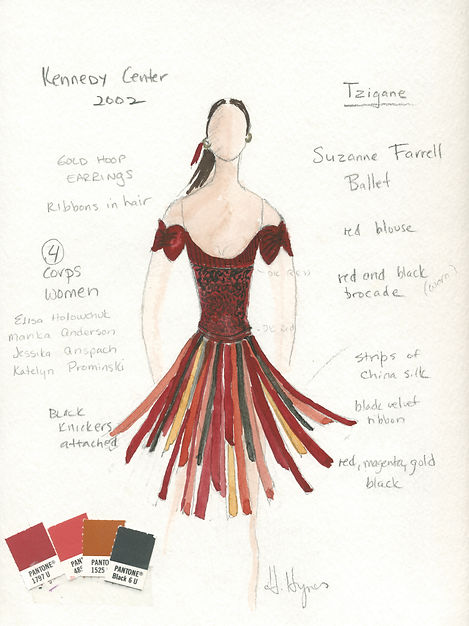 Kennedy Center
2002
Tzigane
Suzanne Farrell
Ballet
GOLD HOOP
EARRINGS
Ribbons in hair
4
corps
women
Elisa Holowchuk
Marika Anderson
Jessika Anspach
Katelyn Prominski
BLACK
Knickers
attached
red blouse
red and black
brocade
strips of
China silk
black velvet
ribbon
red, magenta, gold
black
PANTONE®
1797 U
PANT
485
PANTO
1525
PANTONE®
Black 6 U
H. Hynes